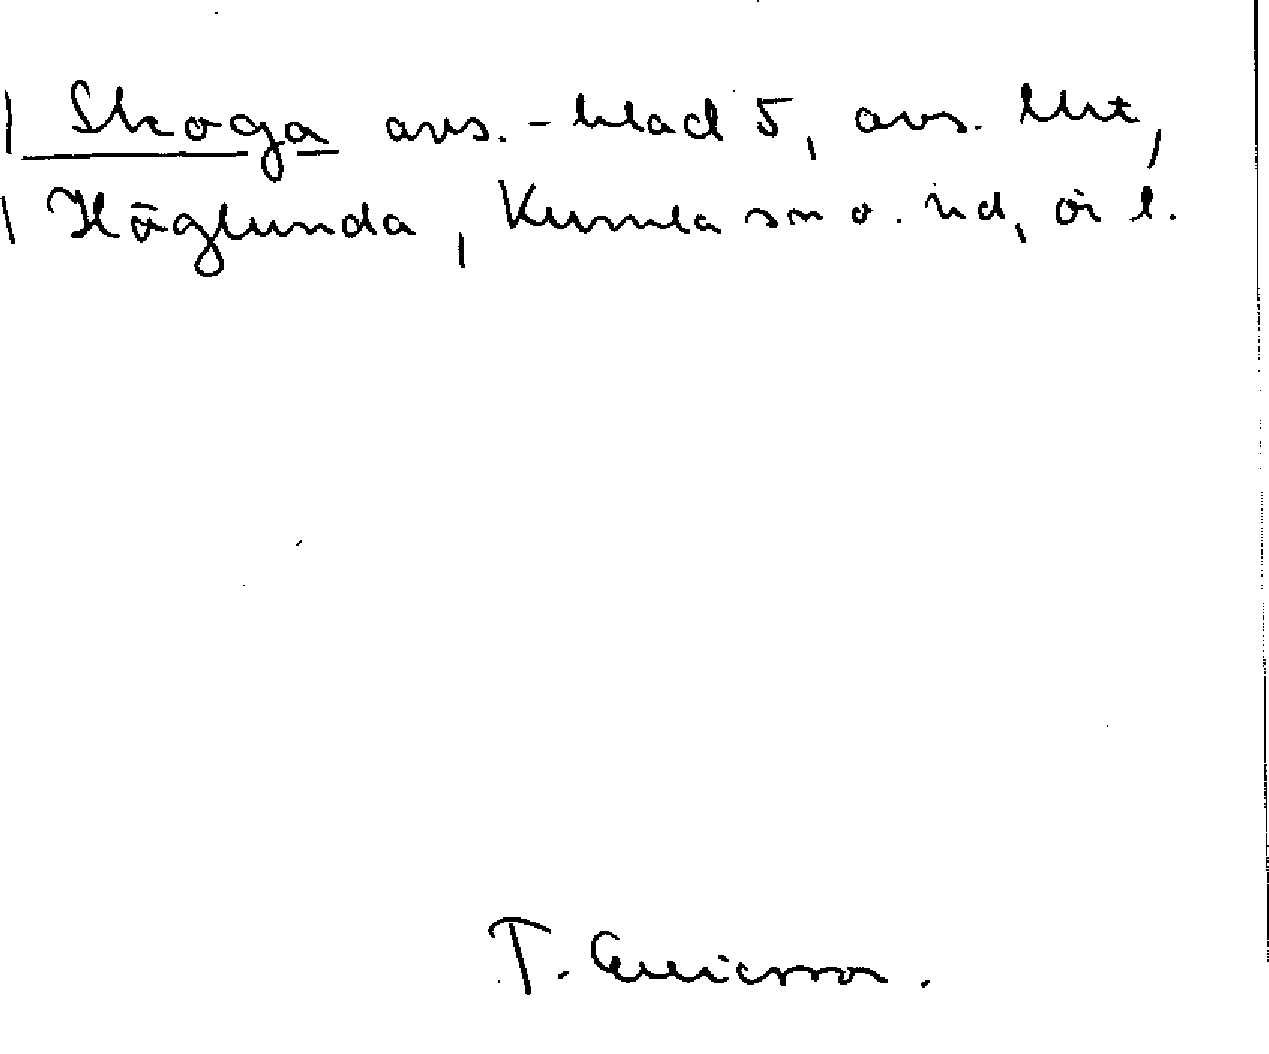 Skoga avs. - blad 5, avs. lht,
Höglunda, Kumla sn o. hd, ör l.
T. Ericsson.